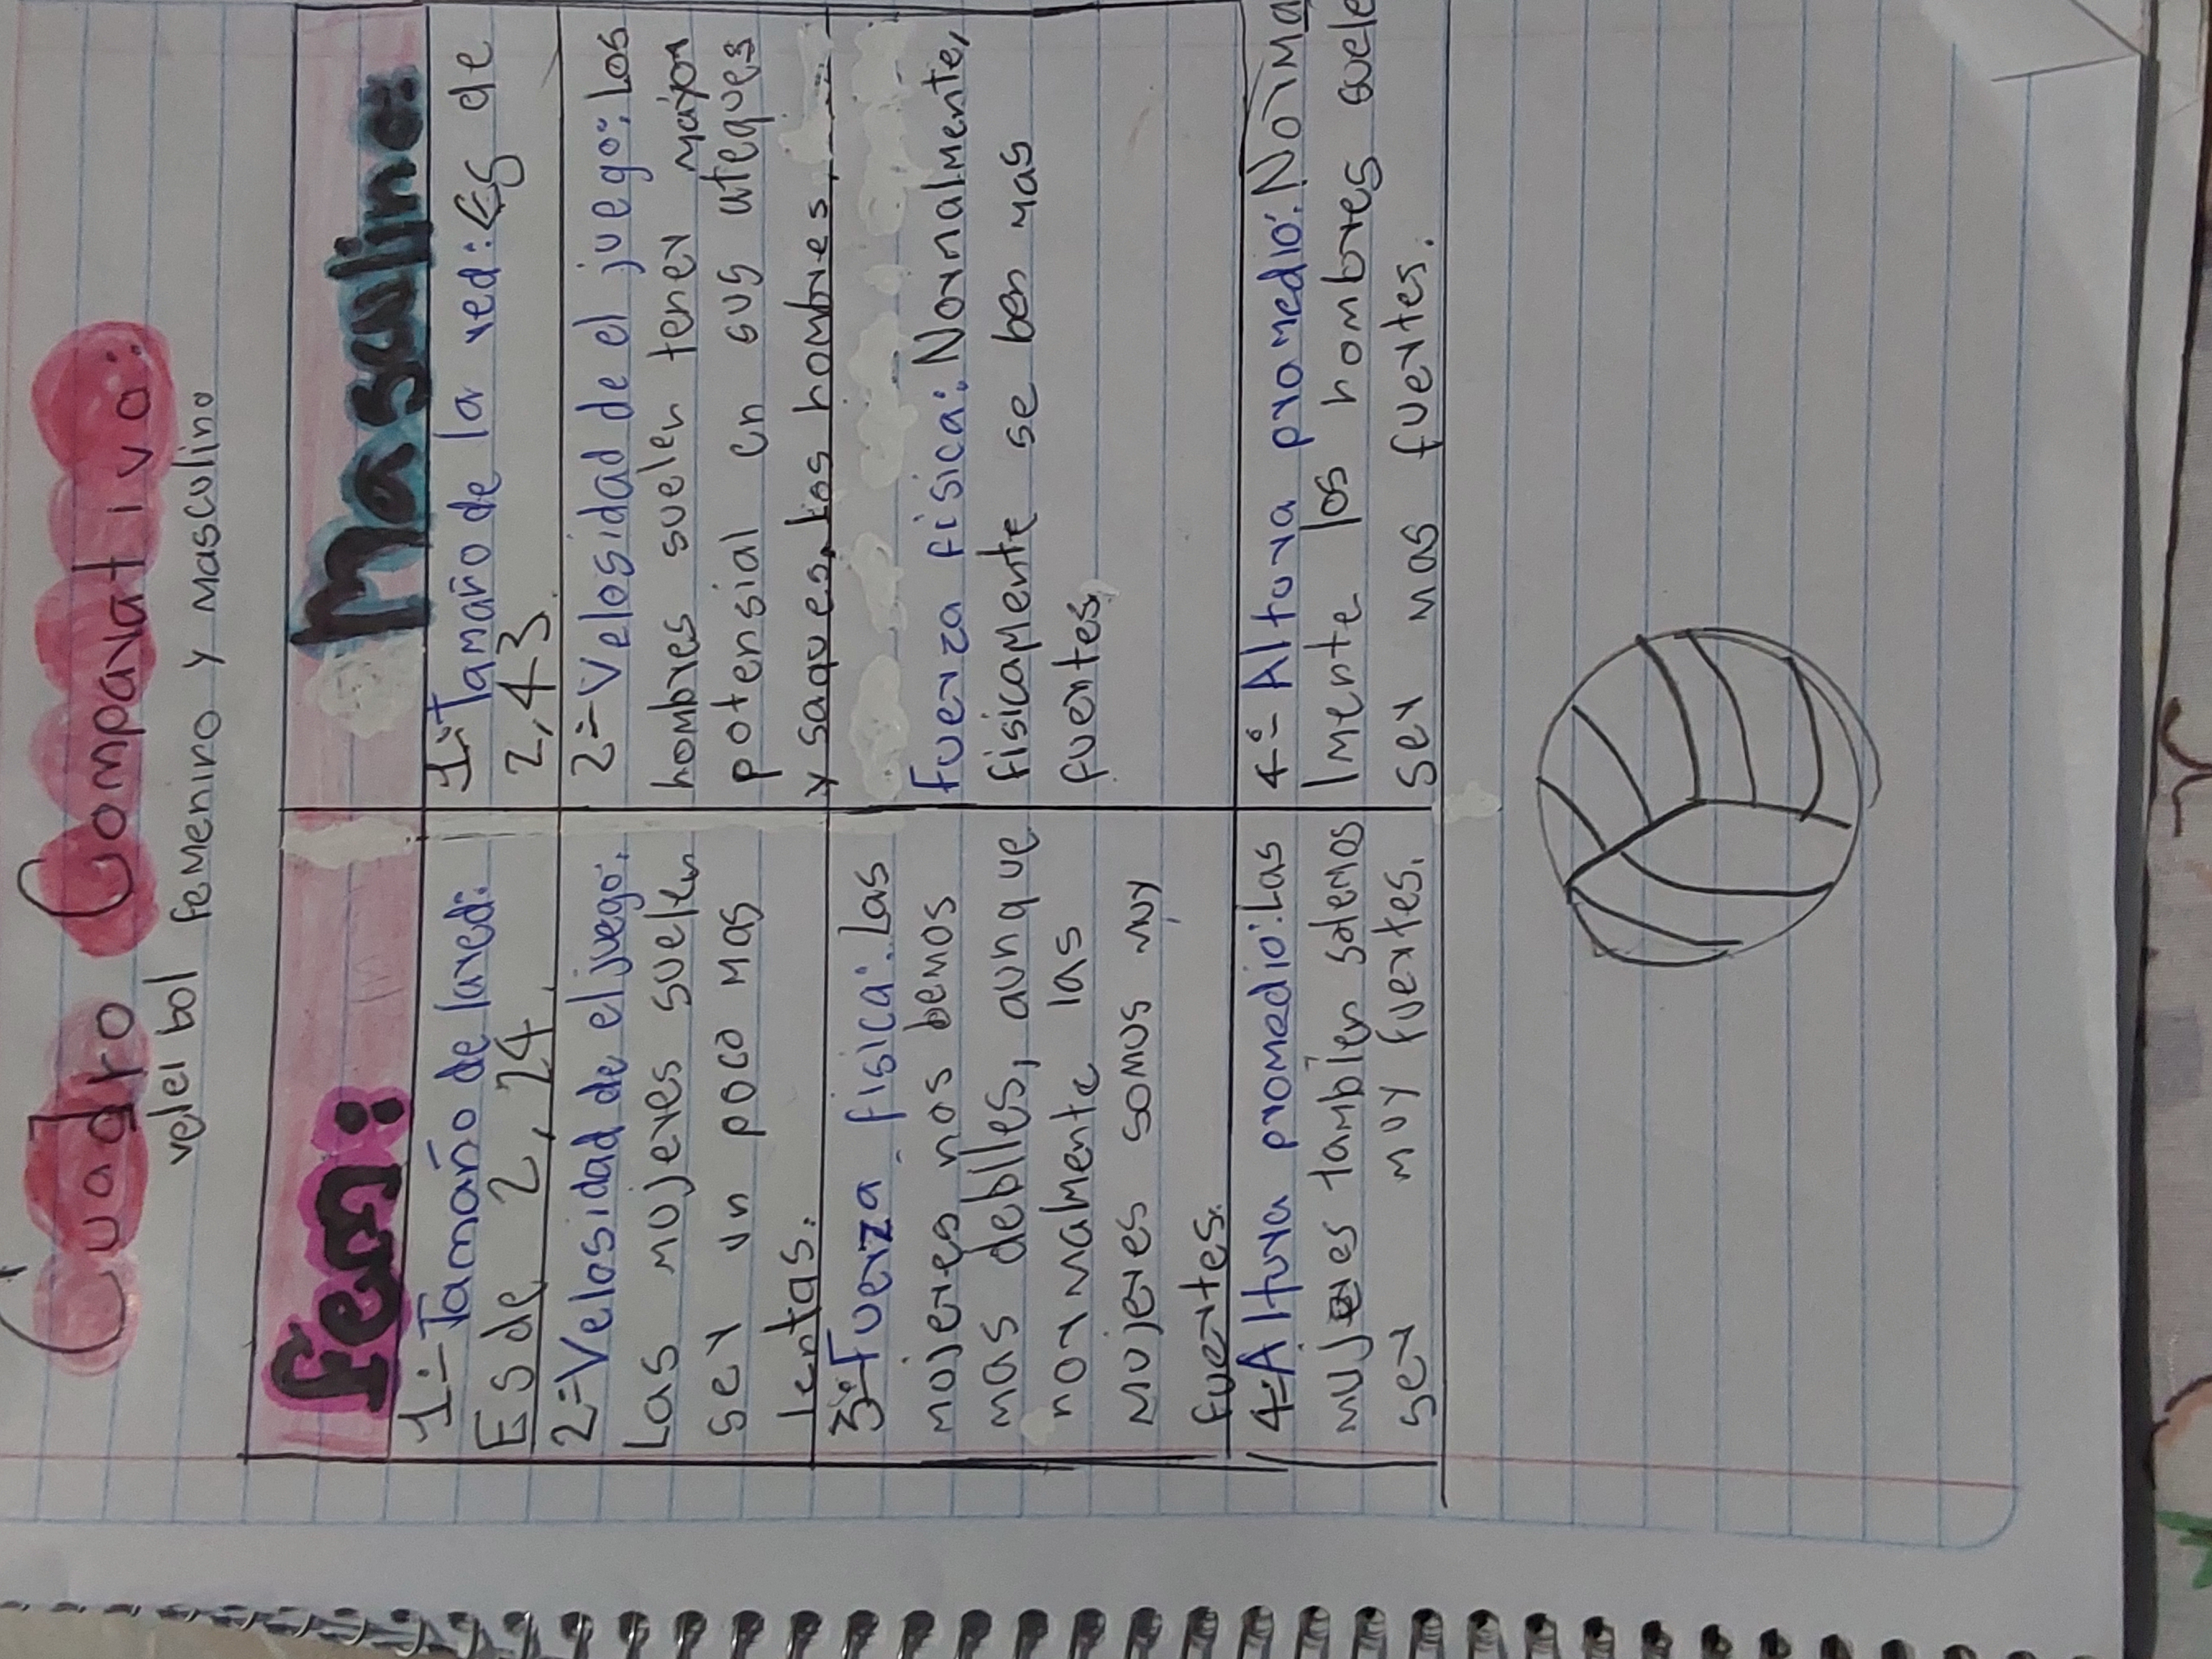 Cuadro Comparativo:
velei bol femenino y masculino
fem:
1=Tamaño de lared:
Es de 2,24.
2=Velosidad de el juego:
Las mujeres suelen
ser un poco mas
lentas.
3=Fuerza fisica: Las
mojeres nos bemos
mas debiles, aunque
normalmente las
mujeres somos muy
fuertes.
4=Altura promedio: Las
mujeres también solemos
ser muy fuertes.
Masculino:
1=Tamaño de la red: Es de
2,43.
2=Velosidad de el juego: Los
hombres suelen tener mayor
potensial en sus ateques
y saques, los hombres.
Fuerza fisica: Normalmente,
fisicamente se ben mas
fuertes,
4=Altura promedio: Norma
lmente los hombres suele
ser mas fuertes.